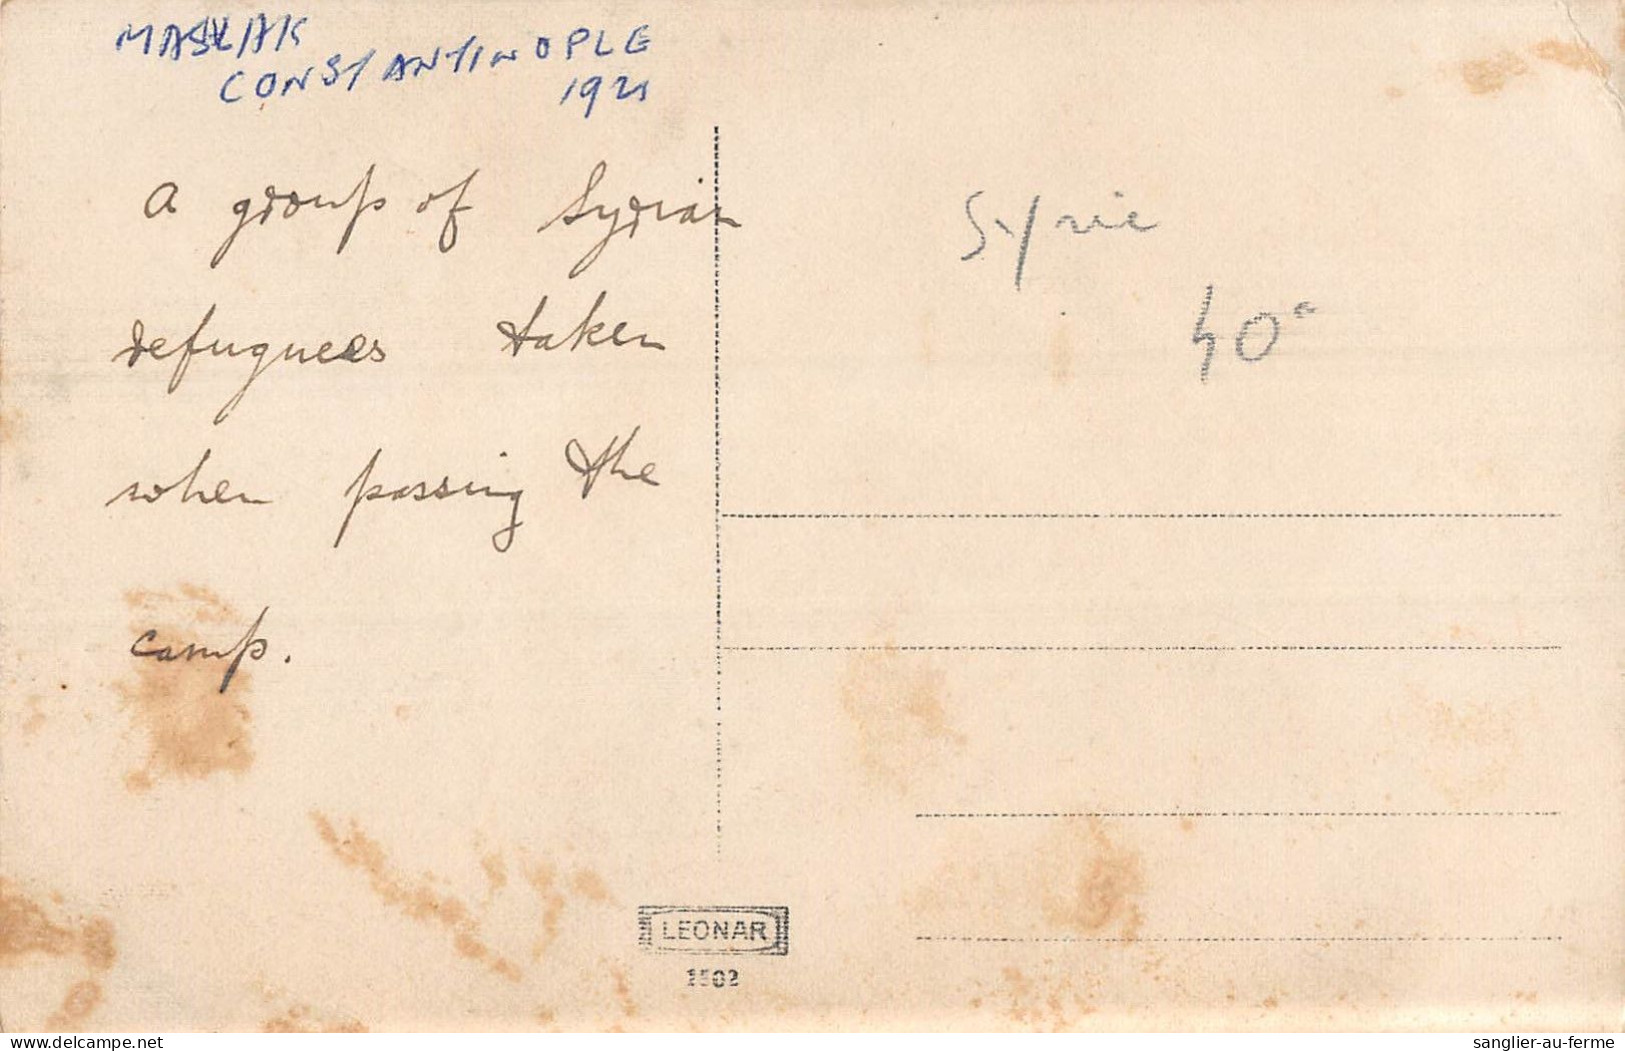 MASLAK
CONSTANTINOPLE
1921
A group of Syrian
refugnees taken
when passing the
camp.
Syrie
40
LEONAR
1502
delcampe.net
sanglier-au-ferme